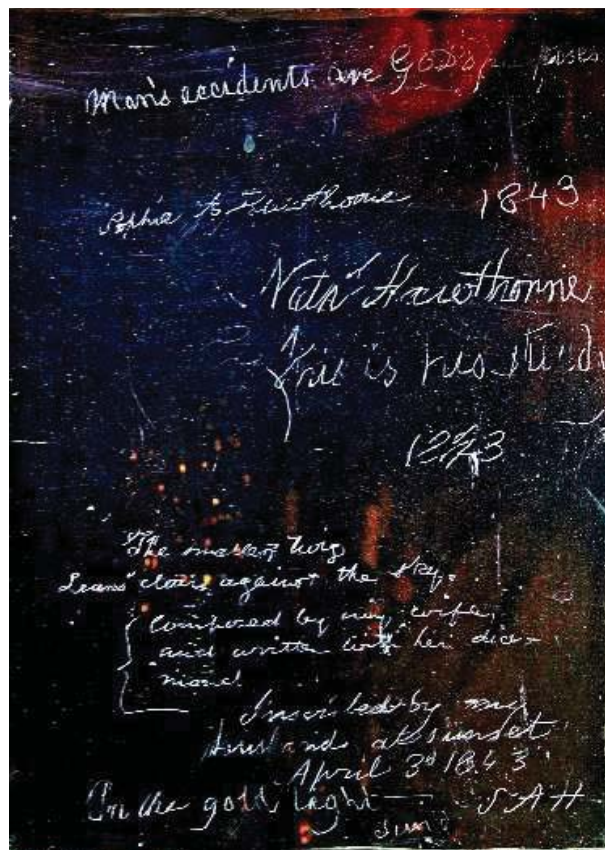 Man's accidents are GOD's purposes
Sophia A Hawthorne 1843
Nath^l Hawthorne
This is his study
1843
The smallest twig
Leans clear against the sky.
Composed by my wife,
and written with her dia-
mond
Inscribed by my
husband at sunset
April 3^d 1843
In the gold light SAH